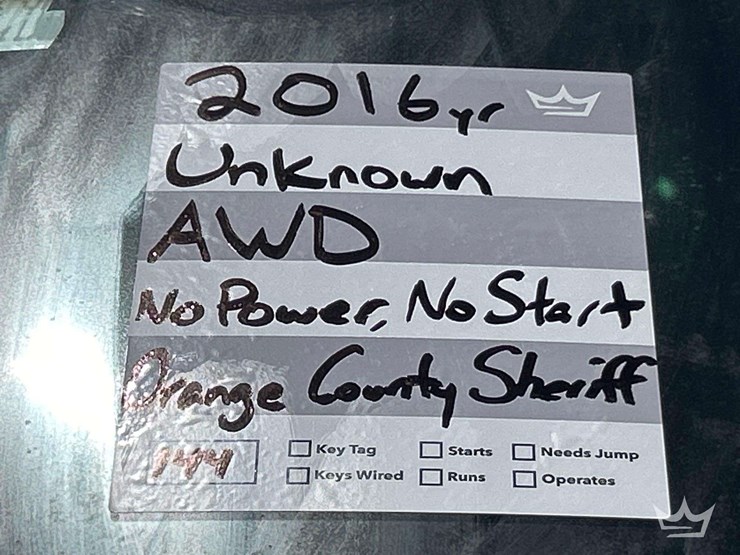 2016yr
Unknown
AWD
No Power, No Start
Orange County Sheriff
144
Key Tag Starts Needs Jump
Keys Wired Runs Operates